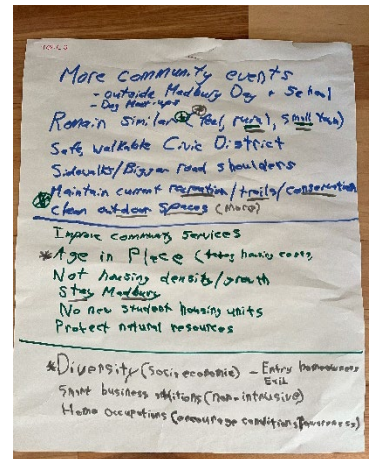 More community events
- outside Madbury Day + School
- Dog Meet-ups
Remain similar (feel, rural, small town)
Safe, walkable Civic District
Sidewalks/Bigger road shoulders
Maintain current recreation/trails/conservation
Clean outdoor spaces (more)
Improve community services
*Age in Place (taxes housing costs,
Not housing density/growth
Stay Madbury
No new student housing units
Protect natural resources
*Diversity (socioeconomic) - Entry homeowners
Exit
Small business additions (non-intrusive)
Home Occupations (encourage conditions/awareness)